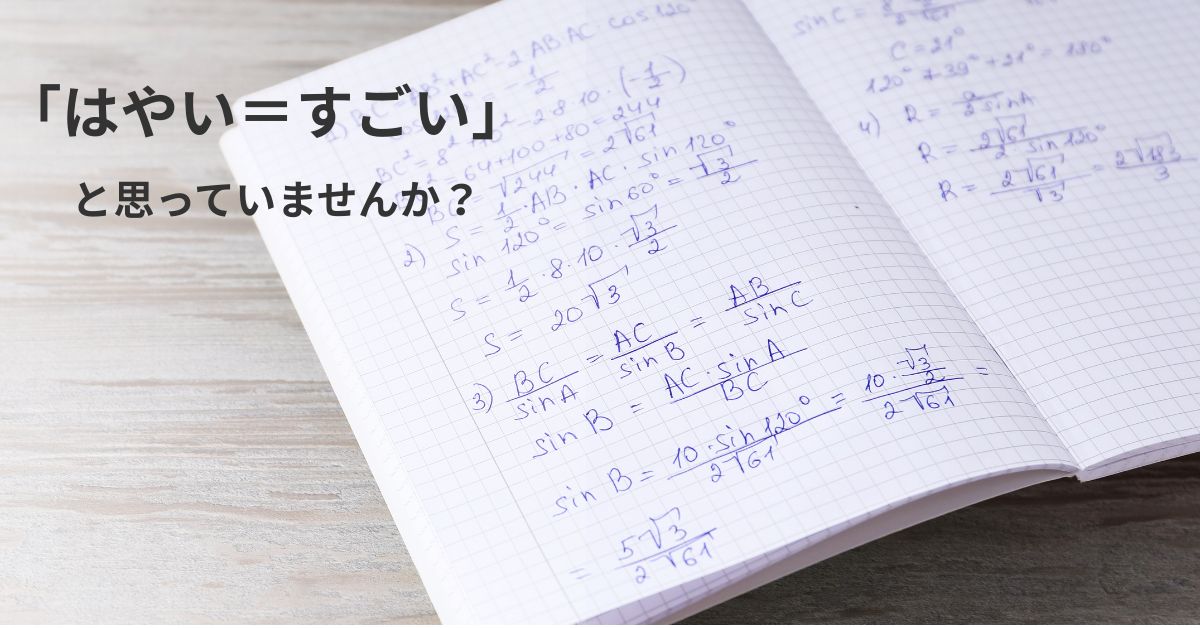 「はやい＝すごい」
と思っていませんか？
BC² = AB² + AC² - 2 AB·AC·cos 120°
= -1/2
BC² = 8² + 10² - 2·8·10·(-1/2)
= 64+100+80 = 244
BC = √244 = 2√61
2) S = 1/2·AB·AC·sin 120°
sin 120° = sin 60° = √3/2
S = 1/2·8·10·√3/2
S = 20√3
3) BC/sin A = AC/sin B = AB/sin C
sin B = AC·sin A/BC
sin B = 10·sin 120°/2√61 = 10·√3/2/2√61 =
= 5√3/2√61
sin C =
C = 21°
120° + 39° + 21° = 180°
4) R = a/2 sin A
R = 2√61/2 sin 120°
R = 2√61/√3 = 2√183/3